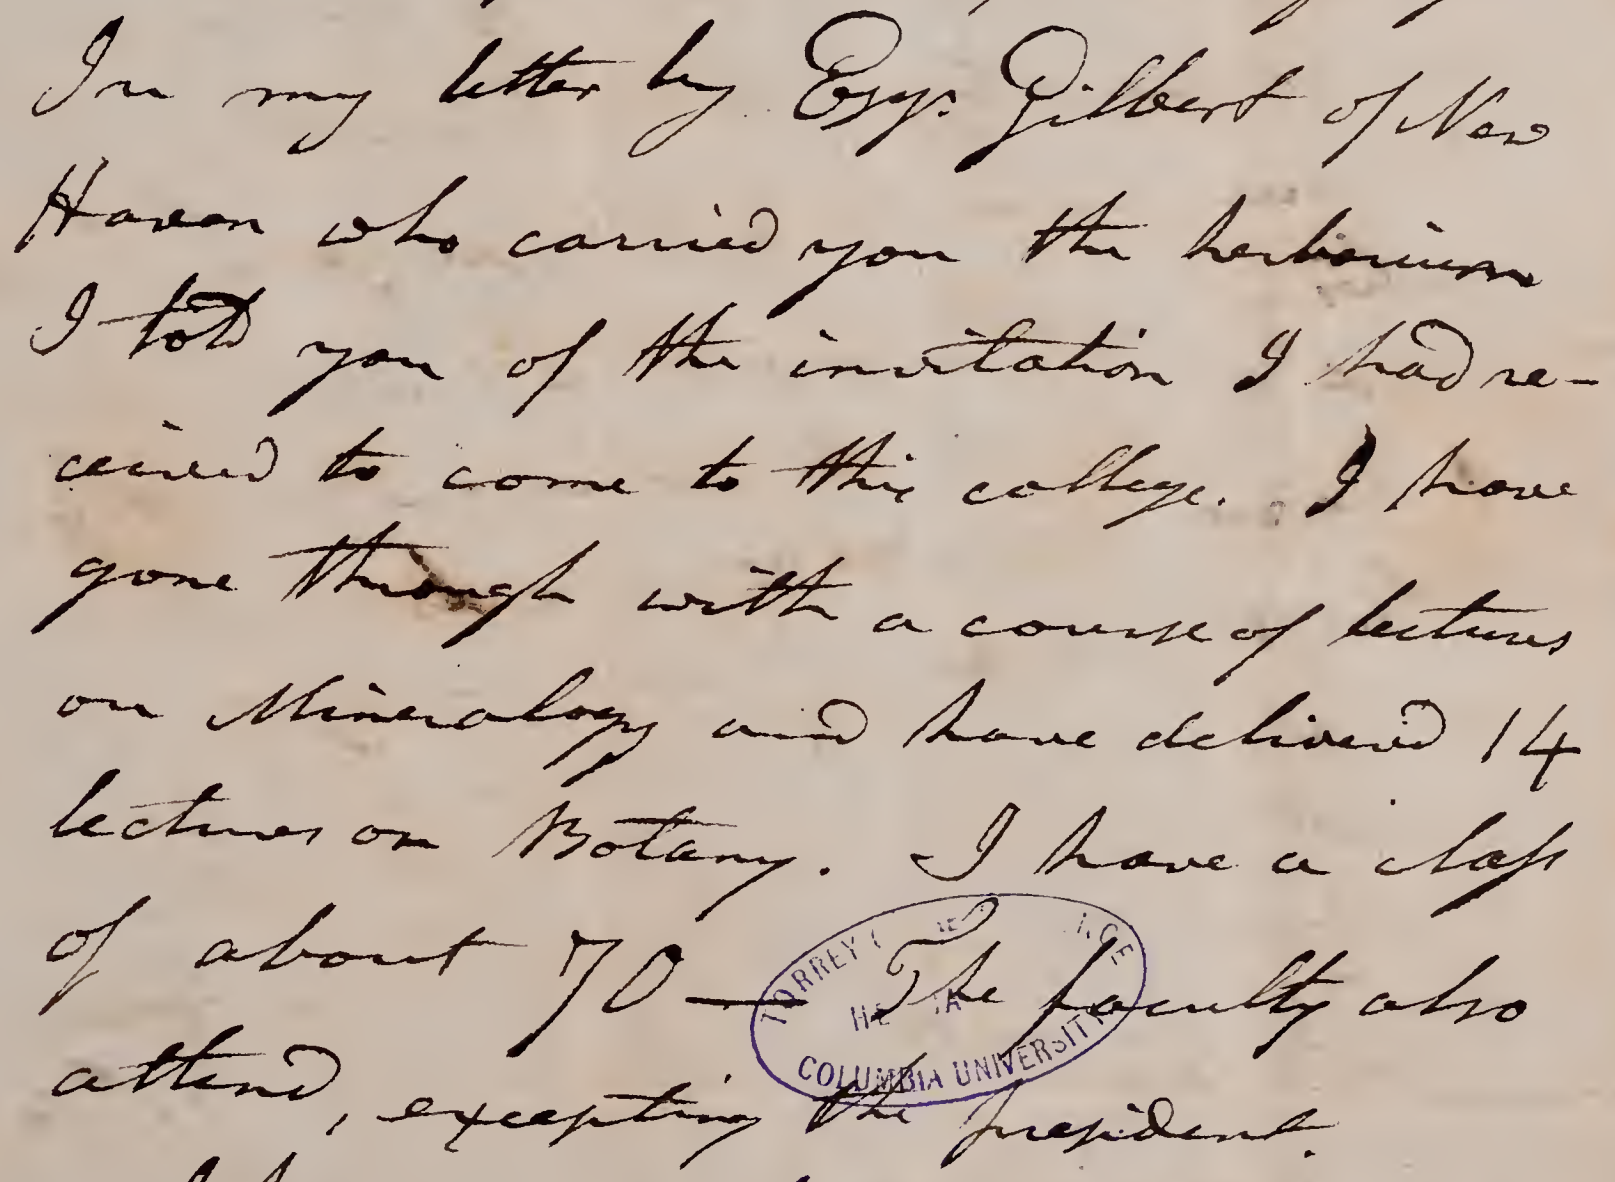 In my letter by Esqr. Gilbert of New
Haven who carried you the herbarium
I told you of the invitation I had re-
ceived to come to this college. I have
gone through with a course of lectures
on Mineralogy and have delivered 14
lectures on Botany. I have a class
of about 70— The faculty also
attend, excepting the president.
TORREY
COLUMBIA UNIVERSITY